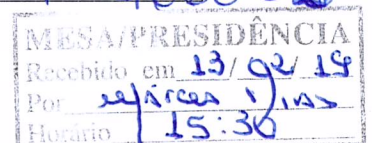 MESA/PRESIDÊNCIA
Recebido em 13/02/19
Por
Horário 15:30